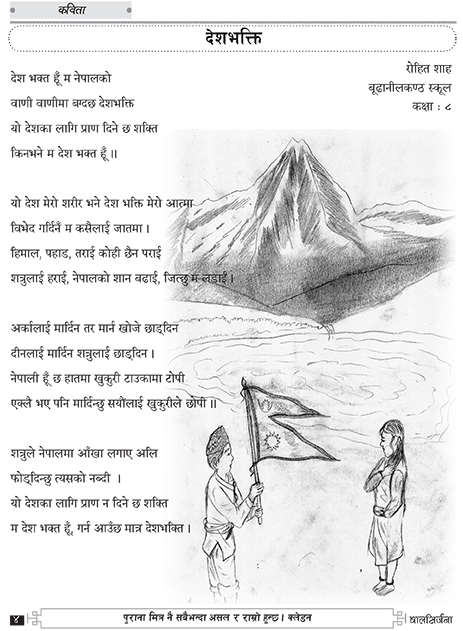 कविता
देशभक्ति
रोहित शाह
बूढानीलकण्ठ स्कूल
कक्षा : ८
देश भक्त हूँ म नेपालको
वाणी वाणीमा बग्दछ देशभक्ति
यो देशका लागि प्राण दिने छ शक्ति
किनभने म देश भक्त हूँ ॥
यो देश मेरो शरीर भने देश भक्ति मेरो आत्मा
विभेद गर्दिनँ म कसैलाई जातमा ।
हिमाल, पहाड, तराई कोही छैन पराई
शत्रुलाई हराई, नेपालको शान बढाई, जित्छु म लडाई ।
अर्कालाई मार्दिन तर मार्न खोजे छाड्दिन
दीनलाई मार्दिन शत्रुलाई छाड्दिन ।
नेपाली हूँ छ हातमा खुकुरी टाउकामा टोपी
एक्लै भए पनि मार्दिन्छु सयौंलाई खुकुरीले छोपी ॥
शत्रुले नेपालमा आँखा लगाए अलि
फोड्दिन्छु त्यसको नब्दी ।
यो देशका लागि प्राण न दिने छ शक्ति
म देश भक्त हूँ, गर्न आउँछ मात्र देशभक्ति ।
४
पुराना मित्र नै सबैभन्दा असल र राम्रो हुन्छ । क्लेडन
बालसिर्जना